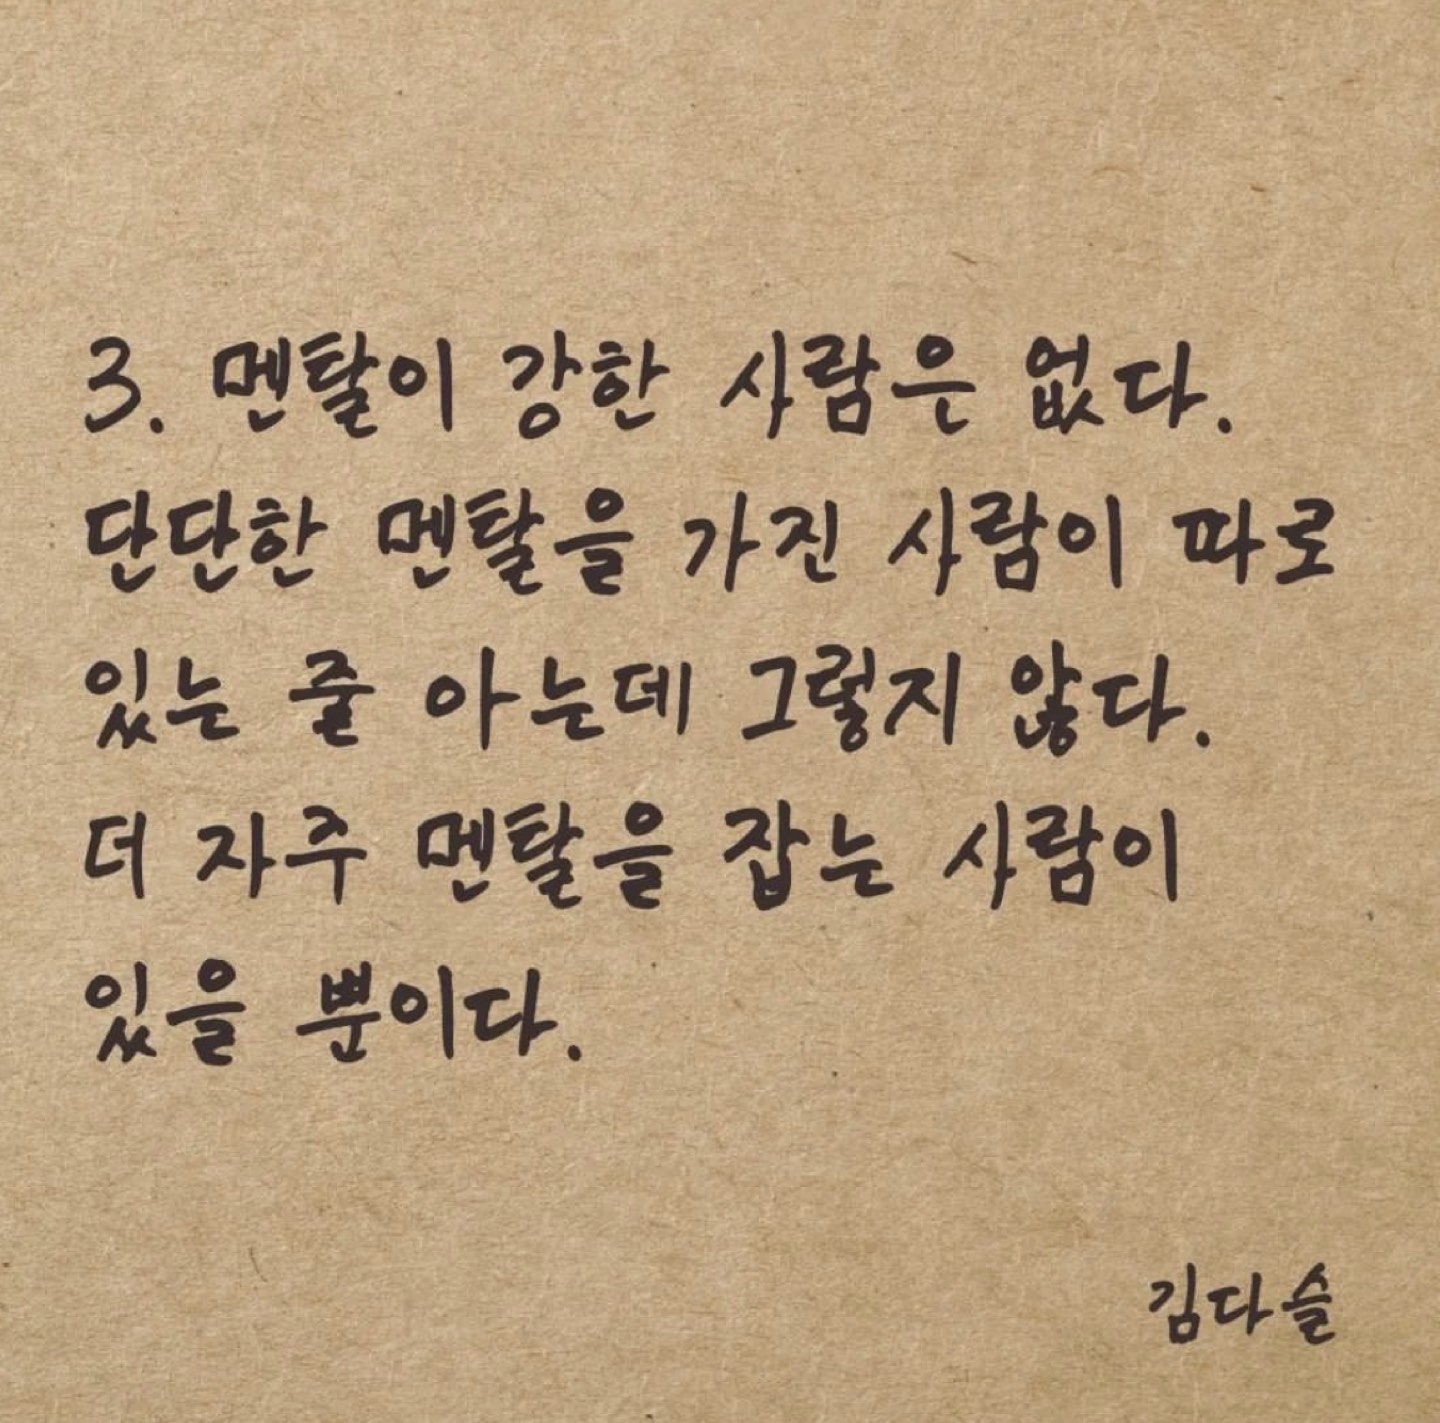 3. 멘탈이 강한 사람은 없다.
단단한 멘탈을 가진 사람이 따로
있는 줄 아는데 그렇지 않다.
더 자주 멘탈을 잡는 사람이
있을 뿐이다.
김다슬